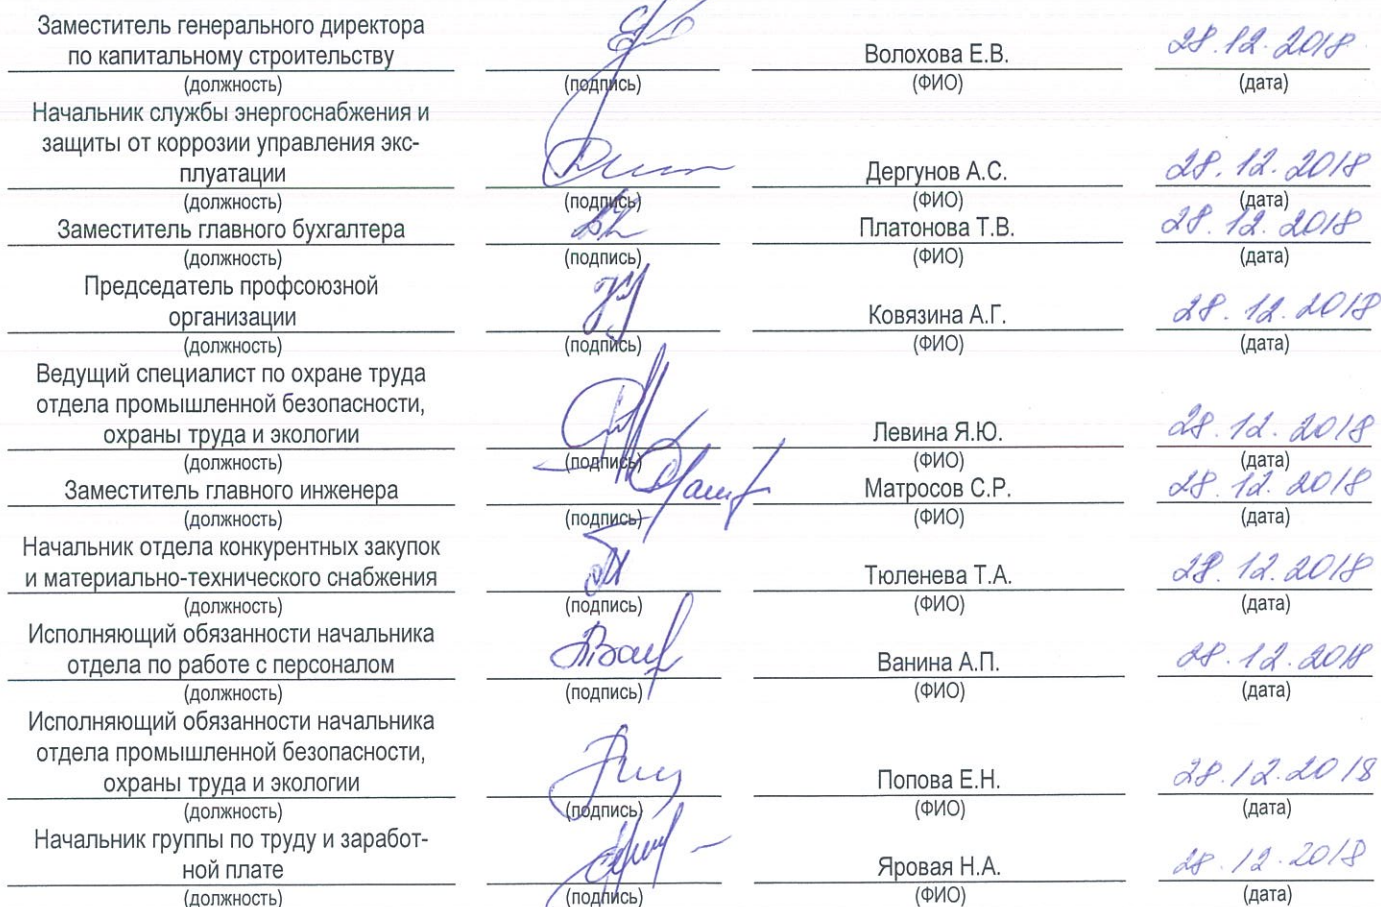 Заместитель генерального директора
по капитальному строительству Волохова Е.В. 28.12.2018
(должность) (подпись) (ФИО) (дата)
Начальник службы энергоснабжения и
защиты от коррозии управления экс-
плуатации Дергунов А.С. 28.12.2018
(должность) (подпись) (ФИО) (дата)
Заместитель главного бухгалтера Платонова Т.В. 28.12.2018
(должность) (подпись) (ФИО) (дата)
Председатель профсоюзной
организации Ковязина А.Г. 28.12.2018
(должность) (подпись) (ФИО) (дата)
Ведущий специалист по охране труда
отдела промышленной безопасности,
охраны труда и экологии Левина Я.Ю. 28.12.2018
(должность) (подпись) (ФИО) (дата)
Заместитель главного инженера Матросов С.Р. 28.12.2018
(должность) (подпись) (ФИО) (дата)
Начальник отдела конкурентных закупок
и материально-технического снабжения Тюленева Т.А. 28.12.2018
(должность) (подпись) (ФИО) (дата)
Исполняющий обязанности начальника
отдела по работе с персоналом Ванина А.П. 28.12.2018
(должность) (подпись) (ФИО) (дата)
Исполняющий обязанности начальника
отдела промышленной безопасности,
охраны труда и экологии Попова Е.Н. 28.12.2018
(должность) (подпись) (ФИО) (дата)
Начальник группы по труду и заработ-
ной плате Яровая Н.А. 28.12.2018
(должность) (подпись) (ФИО) (дата)